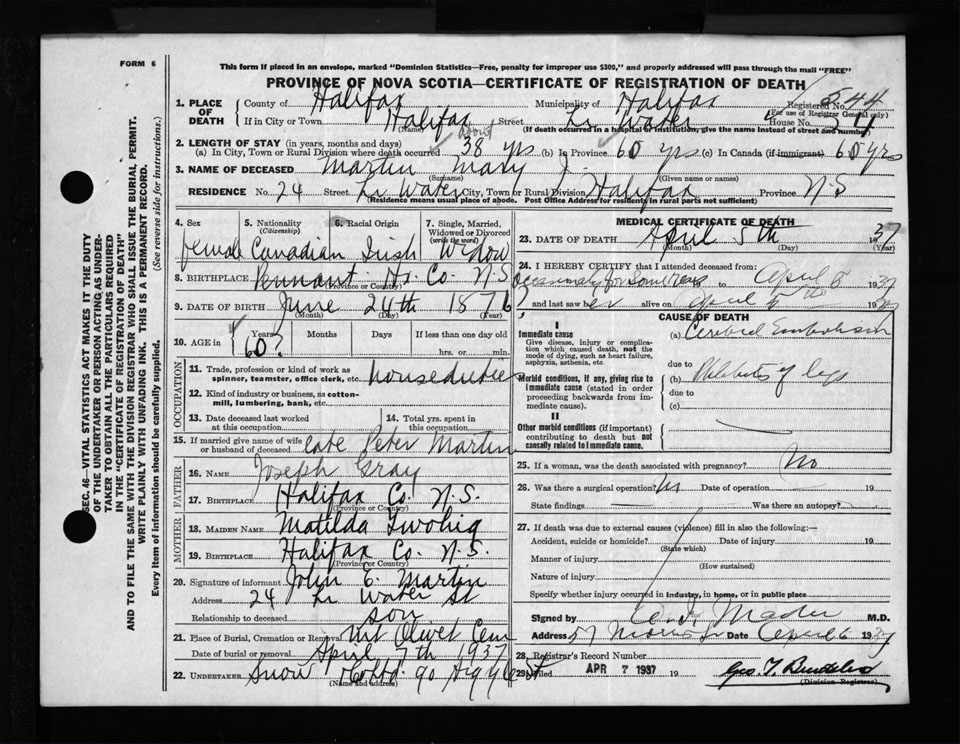 FORM 6
This form if placed in an envelope, marked "Dominion Statistics—Free, penalty for improper use $300," and properly addressed will pass through the mail "FREE"
PROVINCE OF NOVA SCOTIA—CERTIFICATE OF REGISTRATION OF DEATH
SEC. 46—VITAL STATISTICS ACT MAKES IT THE DUTY
OF THE UNDERTAKER OR PERSON ACTING AS UNDER-
TAKER TO OBTAIN ALL THE PARTICULARS REQUIRED
IN THE "CERTIFICATE OF REGISTRATION OF DEATH"
AND TO FILE THE SAME WITH THE DIVISION REGISTRAR WHO SHALL ISSUE THE BURIAL PERMIT.
WRITE PLAINLY WITH UNFADING INK. THIS IS A PERMANENT RECORD.
Every item of information should be carefully supplied. (See reverse side for instructions.)
1. PLACE OF DEATH County of Halifax Municipality of Halifax Registered No. 544
(For use of Registrar General only)
If in City or Town Halifax Street Lr Water House No. 24
(Name) (If death occurred in a hospital or institution, give the name instead of street and number)
2. LENGTH OF STAY (in years, months and days)
(a) In City, Town or Rural Division where death occurred about 38 yrs (b) In Province 60 yrs (c) In Canada (if immigrant) 60 yrs
3. NAME OF DECEASED Martin Mary J.
(Surname) (Given name or names)
RESIDENCE No. 24 Street Lr Water City, Town or Rural Division Halifax Province N.S
(Residence means usual place of abode. Post Office Address for residents in rural parts not sufficient)
4. Sex 5. Nationality (Citizenship) 6. Racial Origin 7. Single, Married, Widowed or Divorced (write the word)
female Canadian Irish Widow
8. BIRTHPLACE Pennant Hx. Co. N.S
(Province or Country)
9. DATE OF BIRTH June 24th 1876
(Month) (Day) (Year)
10. AGE in Years Months Days If less than one day old
60? hrs. or min.
OCCUPATION
11. Trade, profession or kind of work as spinner, teamster, office clerk, etc. houseduties
12. Kind of industry or business, as cotton-mill, lumbering, bank, etc.
13. Date deceased last worked at this occupation 14. Total yrs. spent in this occupation
15. If married give name of wife or husband of deceased late Peter Martin
FATHER
16. NAME Joseph Gray
17. BIRTHPLACE Halifax Co. N.S.
(Province or Country)
MOTHER
18. MAIDEN NAME Matilda Twohig
19. BIRTHPLACE Halifax Co. N.S.
(Province or Country)
20. Signature of informant John E. Martin
Address 24 Lr Water St
Relationship to deceased son
21. Place of Burial, Cremation or Removal Mt Olivet Cem
Date of burial or removal April 7th 1937
22. UNDERTAKER Snow 90 Argyle St
(Name and address)
MEDICAL CERTIFICATE OF DEATH
23. DATE OF DEATH April 5th 1937
(Month) (Day) (Year)
24. I HEREBY CERTIFY that I attended deceased from:
to April 5 1937
and last saw her alive on April 1937
CAUSE OF DEATH
I
Immediate cause
Give disease, injury or complication which caused death, not the mode of dying, such as heart failure, asphyxia, asthenia, etc.
(a) Cerebral Embolism
due to
Morbid conditions, if any, giving rise to immediate cause (stated in order proceeding backwards from immediate cause).
(b) Phlebitis of legs
due to
(c)
II
Other morbid conditions (if important) contributing to death but not causally related to immediate cause.
25. If a woman, was the death associated with pregnancy? No
26. Was there a surgical operation? No Date of operation 19
State findings Was there an autopsy?
27. If death was due to external causes (violence) fill in also the following:—
Accident, suicide or homicide? Date of injury 19
(State which)
Manner of injury
(How sustained)
Nature of injury
Specify whether injury occurred in industry, in home, or in public place
Signed by Mader M.D.
Address 57 Morris St Date April 6 1937
28. Registrar's Record Number
29. Filed APR 7 1937 19
(Division Registrar)